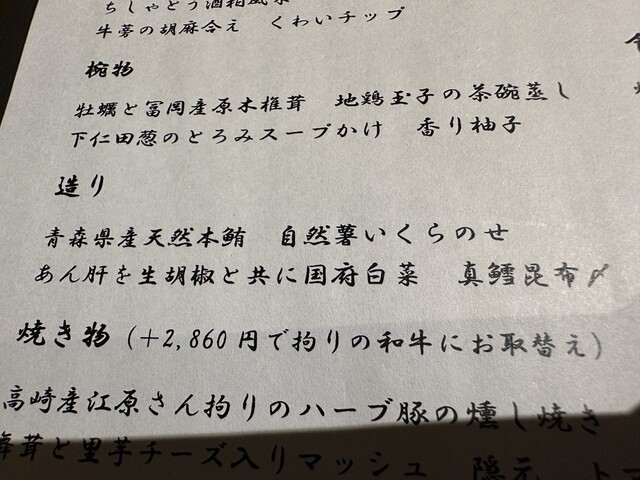 ちしゃとう酒粕風味
牛蒡の胡麻合え　くわいチップ
椀物
牡蠣と冨岡産原木椎茸　地鶏玉子の茶碗蒸し
下仁田葱のとろみスープかけ　香り柚子
造り
青森県産天然本鮪　自然薯いくらのせ
あん肝を生胡椒と共に国府白菜　真鱈昆布〆
焼き物（＋2,860円で拘りの和牛にお取替え）
高崎産江原さん拘りのハーブ豚の燻し焼き
舞茸と里芋チーズ入りマッシュ　隠元